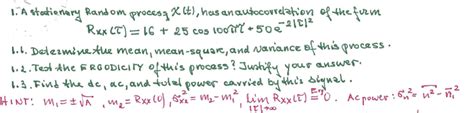 1. A stationary Random process X(t), has an autocorrelation of the form
Rxx(τ) = 16 + 25 cos 100πτ + 50 e^-2|τ|^2
1.1. Determine the mean, mean-square, and variance of this process.
1.2. Test the ERGODICITY of this process? Justify your answer.
1.3. Find the dc, ac, and total power carried by this signal.
HINT: m₁ = ±√A , m₂ = Rxx(0), σx² = m₂ - m₁², lim |τ|→∞ Rxx(τ) = 0. Ac power: